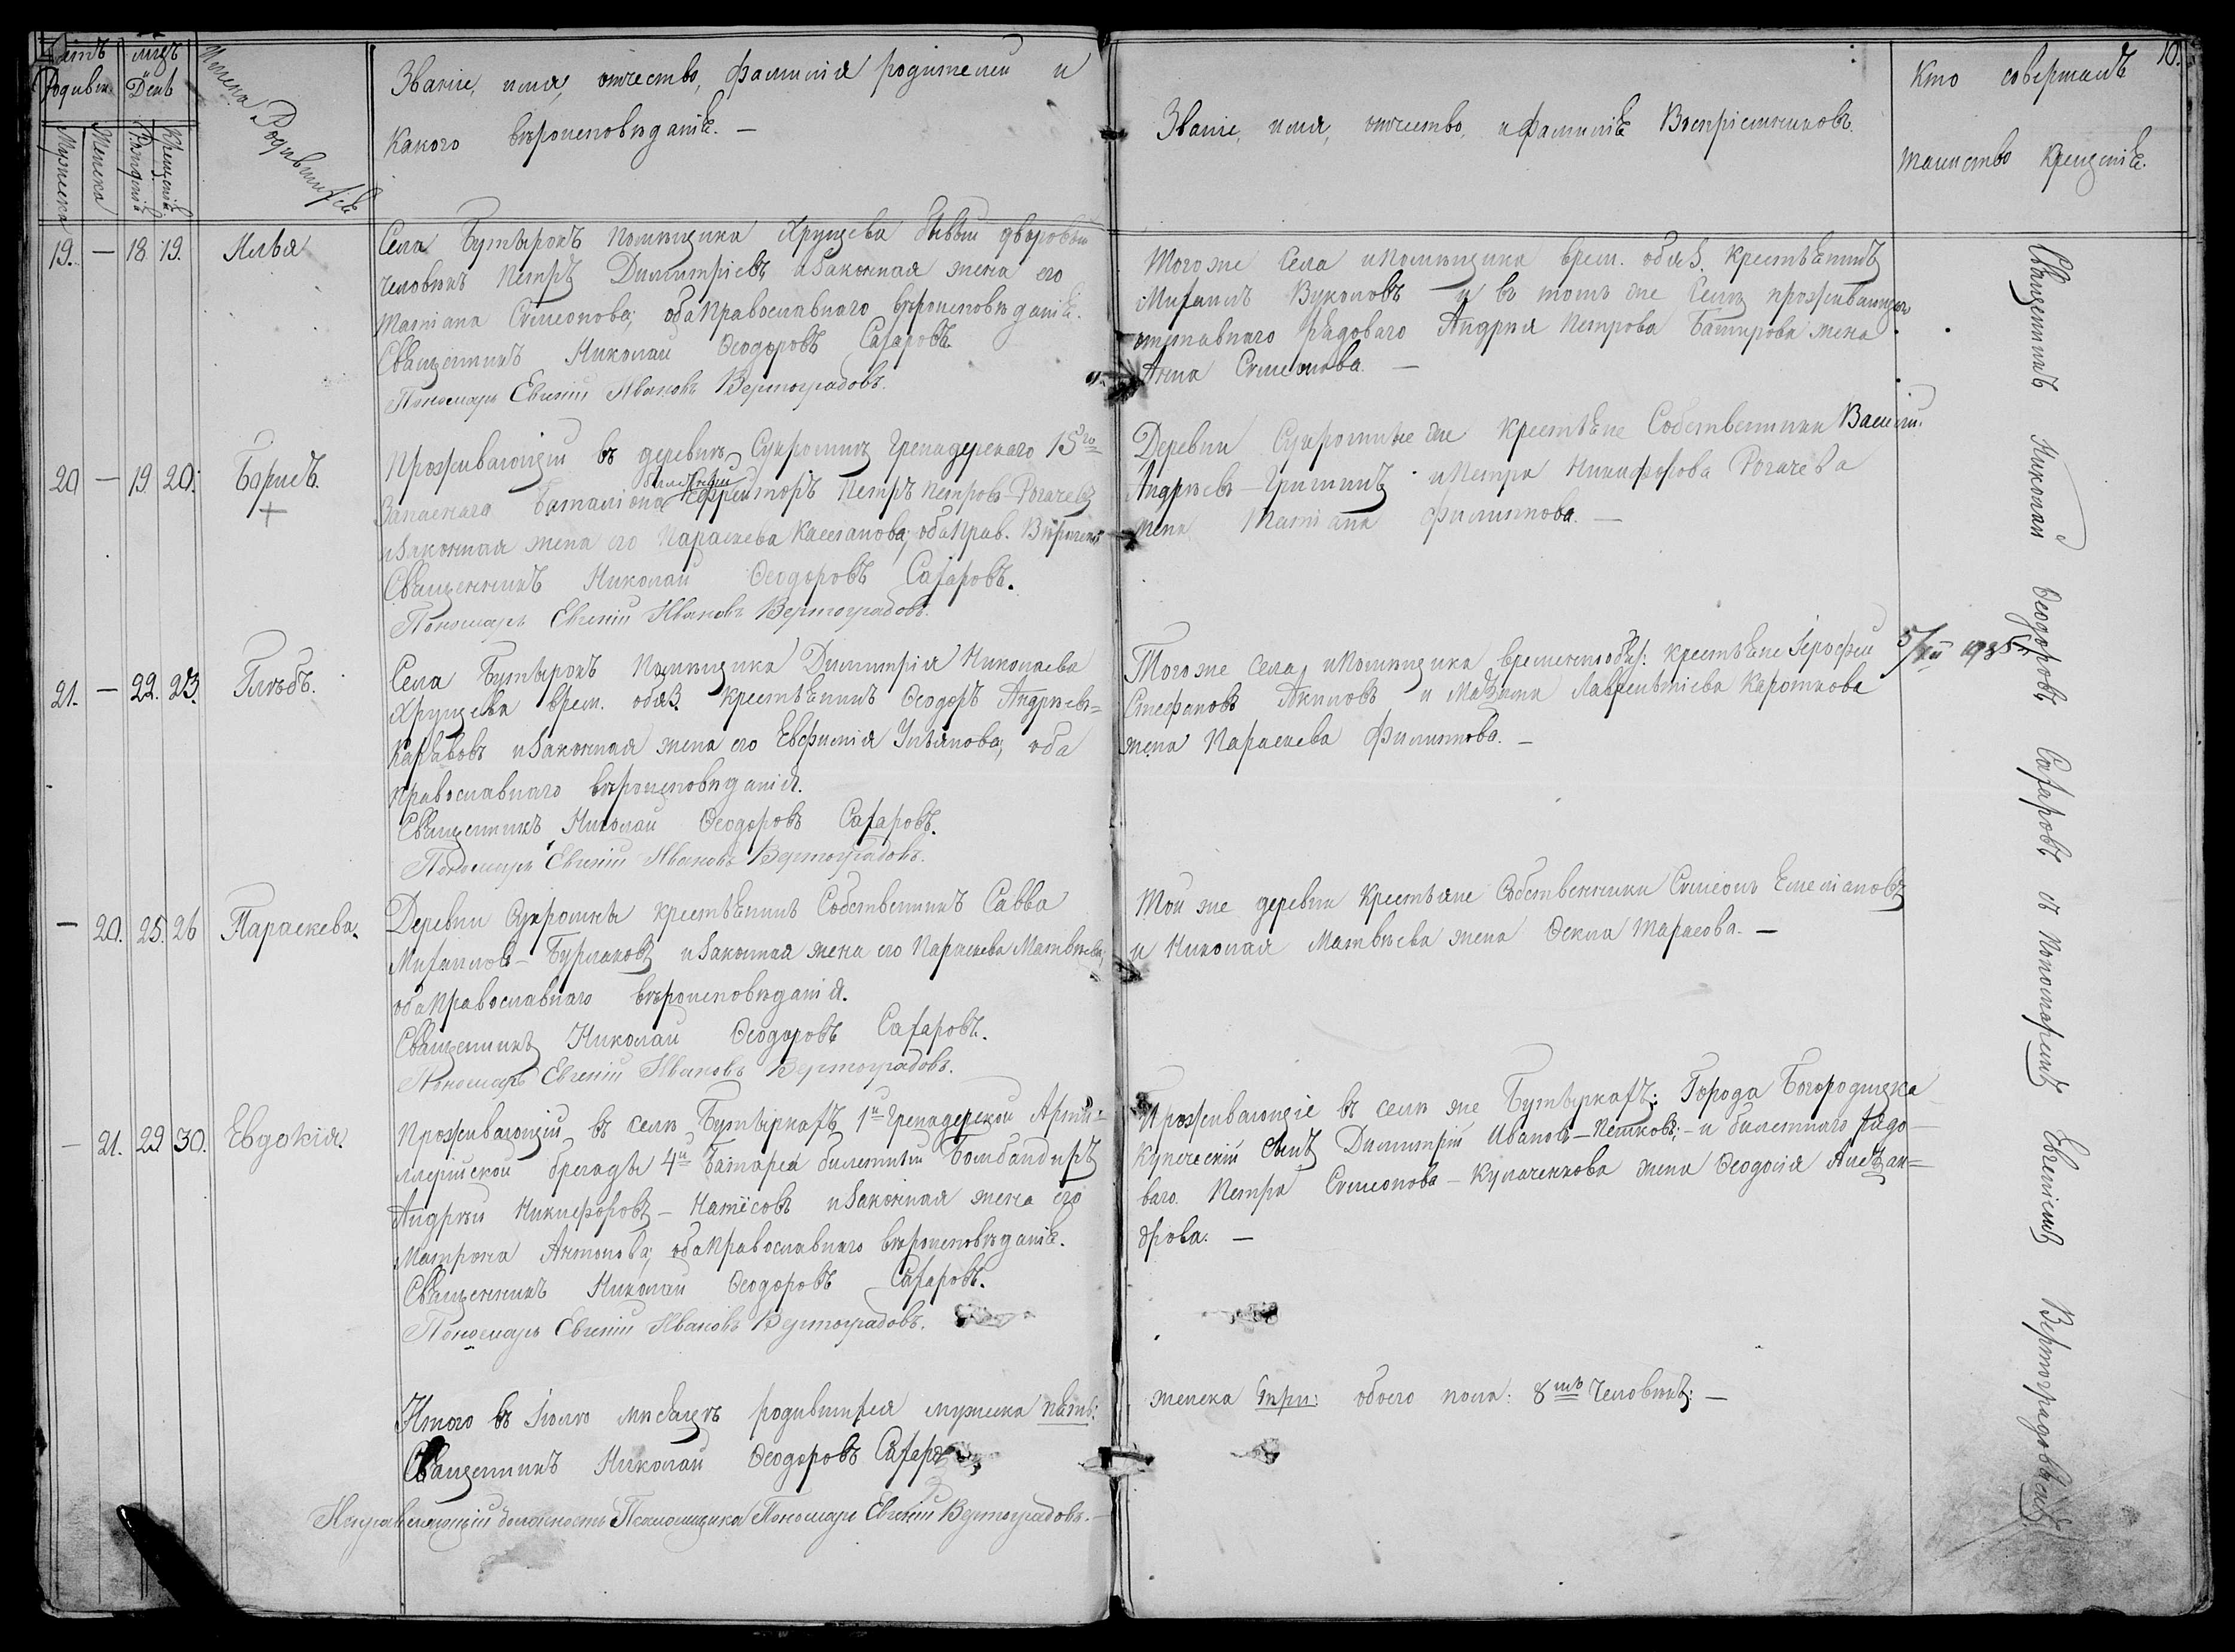 Счетъ Родивш.
Мужеска
Женска
Мцъ День
Рожденія
Крещенія
Имена Родившихся
Званіе, имя, отчество, фамилія родителей и
какого вѣроисповѣданія. —
Званіе, имя, отчество, и фамилія Воспріемниковъ.
Кто совершалъ
таинство крещенія.
10.
19. — 18. 19. Илья
Села Бутырокъ помѣщика Хрущева бывш. дворовый
человѣкъ Петръ Димитріевъ и законная жена его
Татіана Симеонова; оба православнаго вѣроисповѣданія.
Священникъ Николай Ѳеодоровъ Сахаровъ.
Пономарь Евгеній Ивановъ Вертоградовъ.
Того же села и помѣщика врем. обяз. крестьянинъ
Михаилъ Вуколовъ и въ томъ же селѣ проживающаго
отставнаго рядоваго Андрея Петрова Батырова жена
Анна Симеонова. —
20 — 19. 20. Борисъ.
+
Проживающій въ деревнѣ Сукромнѣ Гренадерскаго 15го
билетный
Запаснаго баталіона ефрейторъ Петръ Петровъ Рогачевъ
и законная жена его Параскева Кассіанова; оба прав. Вѣроиспов.
Священникъ Николай Ѳеодоровъ Сахаровъ.
Пономарь Евгеній Ивановъ Вертоградовъ.
Деревни Сукромны же крестьяне Собственники Василій
Андреевъ — Гришинъ и Петра Никифорова Рогачева
жена Татіана Филиппова. —
21. — 22. 23. Глѣбъ.
Села Бутырокъ помѣщика Димитрія Николаева
Хрущева врем. обяз. крестьянинъ Ѳеодоръ Андреевъ =
и законная жена его Евфимія Ульянова; оба
православнаго вѣроисповѣданія.
Священникъ Николай Ѳеодоровъ Сахаровъ.
Пономарь Евгеній Ивановъ Вертоградовъ.
Того же села и помѣщика временнообяз: крестьяне Іерофей
Стефановъ Акимовъ и Максима Лаврентіева Короткова
жена Параскева Филиппова. —
5/XII 1935 г.
— 20. 25. 26 Параскева.
Деревни Сукромны крестьянинъ Собственникъ Савва
Михаиловъ — Бурлаковъ и законная жена его Параскева Матвѣева;
оба православнаго вѣроисповѣданія.
Священникъ Николай Ѳеодоровъ Сахаровъ.
Пономарь Евгеній Ивановъ Вертоградовъ.
Той же деревни крестьяне Собственники Симеонъ Емеліановъ
и Николая Матвѣева жена Ѳекла Тарасова. —
— 21. 29 30. Евдокія.
Проживающій въ селѣ Бутыркахъ 1й Гренадерской Арти=
ллерійской бригады 4й батареи билетный Бомбандиръ
Андрей Никифоровъ — и законная жена его
Матрона Антонова; оба православнаго вѣроисповѣданія.
Священникъ Николай Ѳеодоровъ Сахаровъ.
Пономарь Евгеній Ивановъ Вертоградовъ.
Проживающіе въ селѣ же Бутыркахъ: Города Богородицка
Купеческій сынъ Димитрій Ивановъ — Петковъ; — и билетнаго рядо —
ваго Петра Симеонова — жена Ѳеодосія Алексан=
дрова. —
Итого въ Іюлѣ мѣсяцѣ родившихся мужеска пять:
женска три: обоего пола: 8мь Человѣкъ: —
Священникъ Николай Ѳеодоровъ Сахаровъ
Исправляющій должность Псаломщика Пономарь Евгеній Вертоградовъ. —
Священникъ Николай Ѳеодоровъ Сахаровъ съ Пономаремъ Евгеніемъ Вертоградовымъ